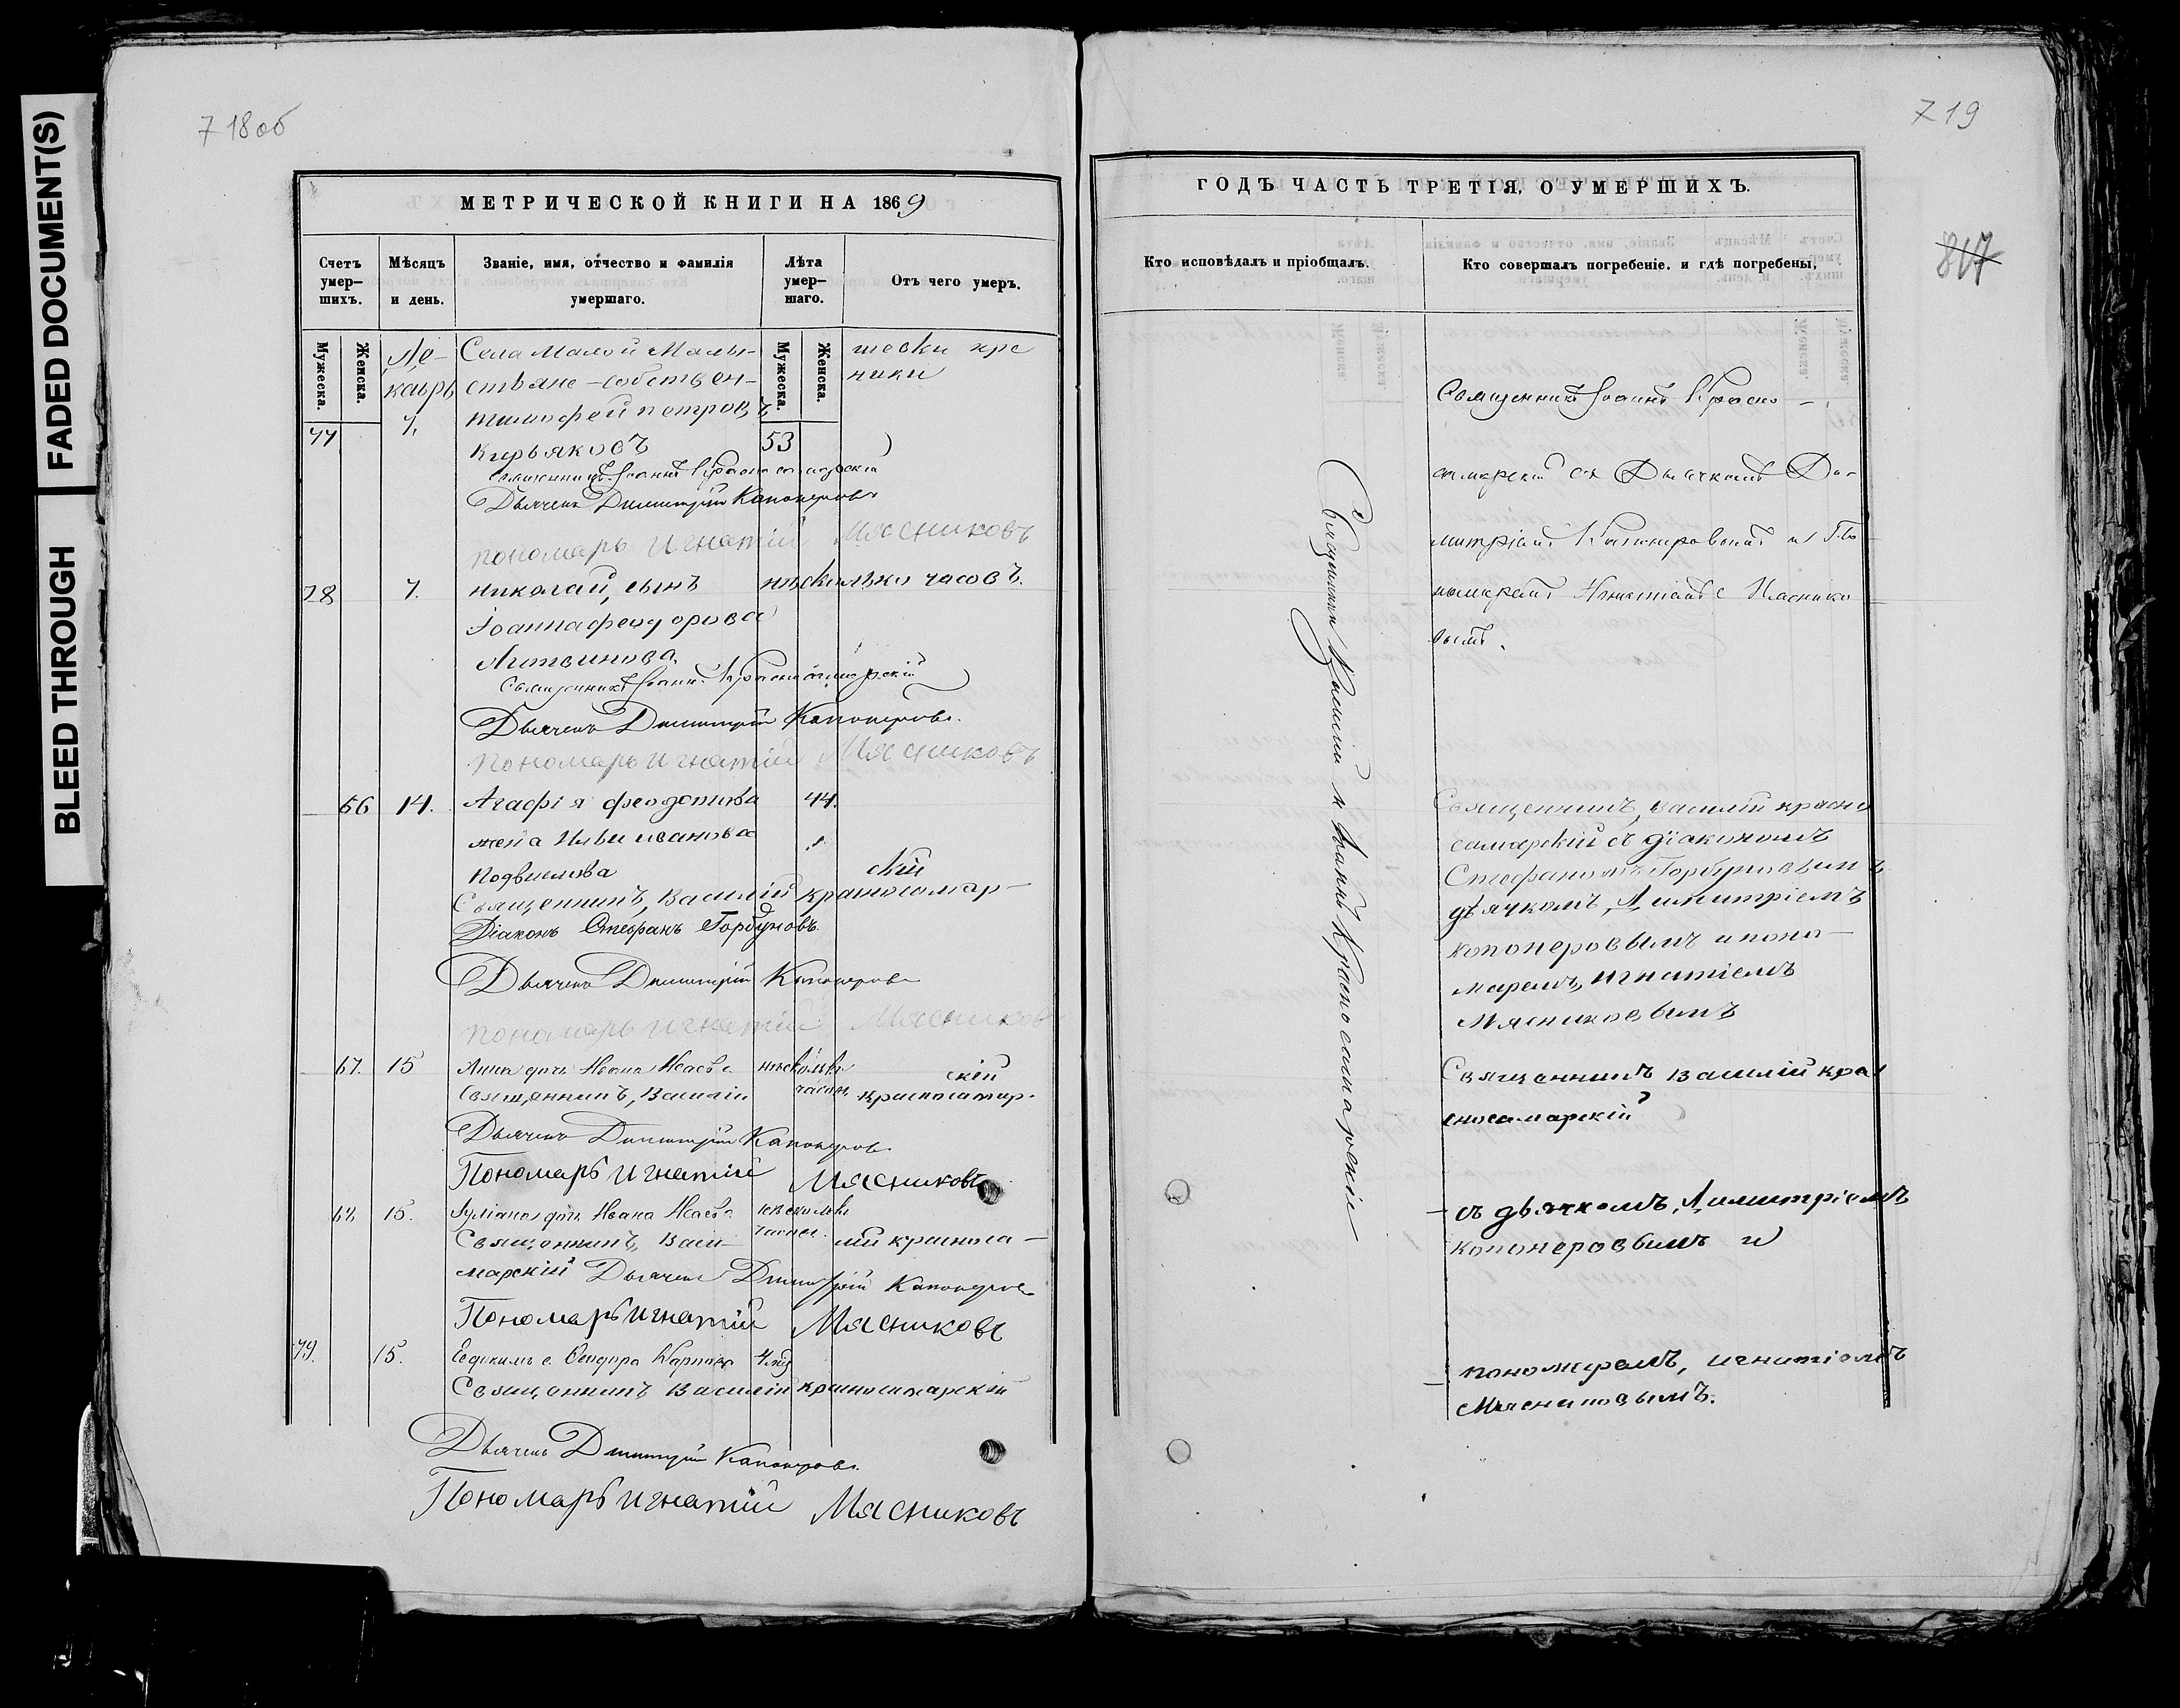 FADED DOCUMENT(S)
BLEED THROUGH
718об
МЕТРИЧЕСКОЙ КНИГИ НА 1869
Счетъ умер-шихъ.
Мѣсяцъ и день.
Званіе, имя, отчество и фамилія умершаго.
Лѣта умер-шаго.
Отъ чего умеръ.
Мужеска.
Женска.
Мужеска.
Женска.
Де- Села Малой Малы- шевки кре
кабрь стьяне-собствен- ники
77 7. тимофей петровъ
Кирьяковъ 53
Священникъ Іоаннъ Красносамарскій
Дьячекъ Димитрій Капонеровъ
пономарь Игнатій Мясниковъ
78 7. николай, сынъ нѣсколько часовъ.
Іоанна феодорова
Литвинова.
Священникъ Іоаннъ Красносамарскій
Дьячекъ Димитрій Капонеровъ.
пономарь Игнатій Мясниковъ
66 14. Агафія феодотова 44.
жена Ильи иванова
Подвилова
скій
Священникъ, Василій красносамар-
Діаконъ Стефанъ Горбуновъ.
Дьячекъ Димитрій Капонеровъ
пономарь Игнатій Мясниковъ
67. 15 Анна дочь Ивана Исаева нѣсколько
часов. скій
Священникъ, Василій красносамар-
Дьячекъ Димитрій Капонеровъ
Пономарь Игнатій Мясниковъ
68 15. Іуліанія дочь Ивана Исаева несколько
часов.
Священникъ, Васи- лій красноса-
марскій Дьячекъ Димитрій Капонеровъ
Пономарь Игнатій Мясниковъ
79. 15. Евдокимъ с. Феодора Карпова 4
Священникъ Василій красносамарскій
Дьячекъ Димитрій Капонеровъ.
Пономарь Игнатій Мясниковъ
719
817
ГОДЪ ЧАСТЬ ТРЕТІЯ, О УМЕРШИХЪ.
Кто исповѣдалъ и пріобщалъ.
Кто совершалъ погребеніе. и гдѣ погребены,
Священники Василій и Іоаннъ Красносамарскіе
Священникъ Іоаннъ Красно-
самарскій съ Дьячкомъ Ди-
митріемъ Капонеровымъ и По
номаремъ Игнатіемъ Мяснико
вымъ.
Священникъ, василій красно
самарскій съ діакономъ
Стефаномъ Горбуновымъ
дьячкомъ, Димитріемъ
копонеровымъ и поно-
маремъ, игнатіемъ
Мясниковымъ
Священникъ василій кра
сносамарскій
съ дьячкомъ, Димитріемъ
копонеровымъ и
пономаремъ, игнатіемъ
Мясниковымъ.